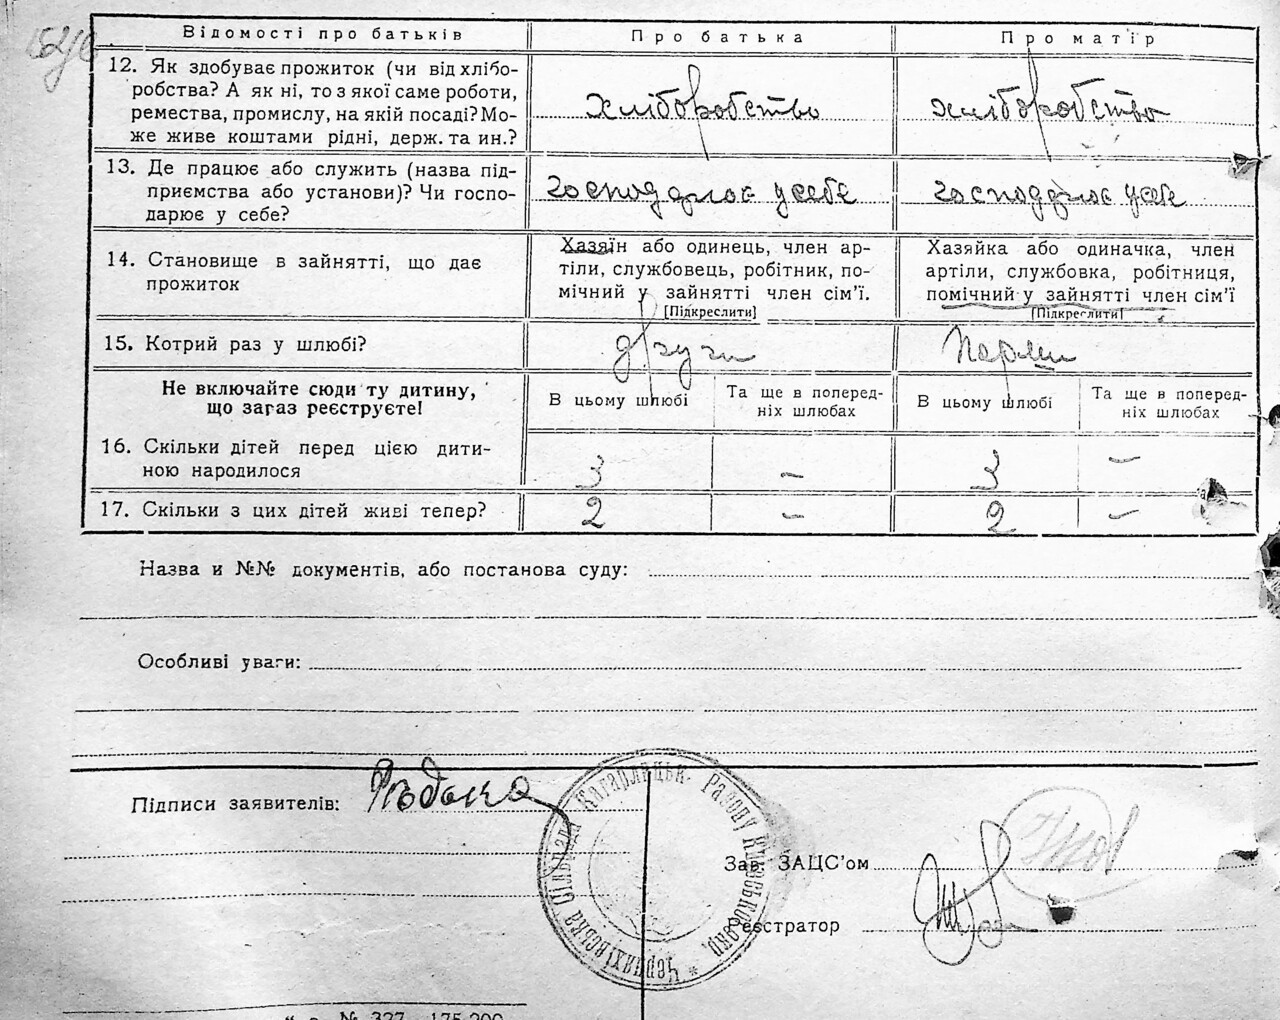 Відомості про батьків
Про батька
Про матір
12. Як здобуває прожиток (чи від хлібо-
робства? А як ні, то з якої саме роботи,
ремества, промислу, на якій посаді? Мо-
же живе коштами рідні, держ. та ин.?
хліборобство
хліборобство
13. Де працює або служить (назва під-
приємства або установи)? Чи госпо-
дарює у себе?
господарює у себе
господарює у себе
14. Становище в зайнятті, що дає
прожиток
Хазяїн або одинець, член ар-
тілі, службовець, робітник, по-
мічний у зайнятті член сім’ї.
[Підкреслити]
Хазяйка або одиначка, член
артілі, службовка, робітниця,
помічний у зайнятті член сім’ї
[Підкреслити]
15. Котрий раз у шлюбі?
другий
Перший
Не включайте сюди ту дитину,
що загаз реєструєте!
В цьому шлюбі
Та ще в поперед-
ніх шлюбах
В цьому шлюбі
Та ще в поперед-
ніх шлюбах
16. Скільки дітей перед цією дити-
ною народилося
3
–
3
–
17. Скільки з цих дітей живі тепер?
2
–
2
–
Назва и №№ документів, або постанова суду:
Особливі уваги:
Підписи заявителів:
Черняхівська Сільрада Кагарлицьк. району Київської окр.
Зав. ЗАЦС’ом
Реєстратор
№ 327—175.200